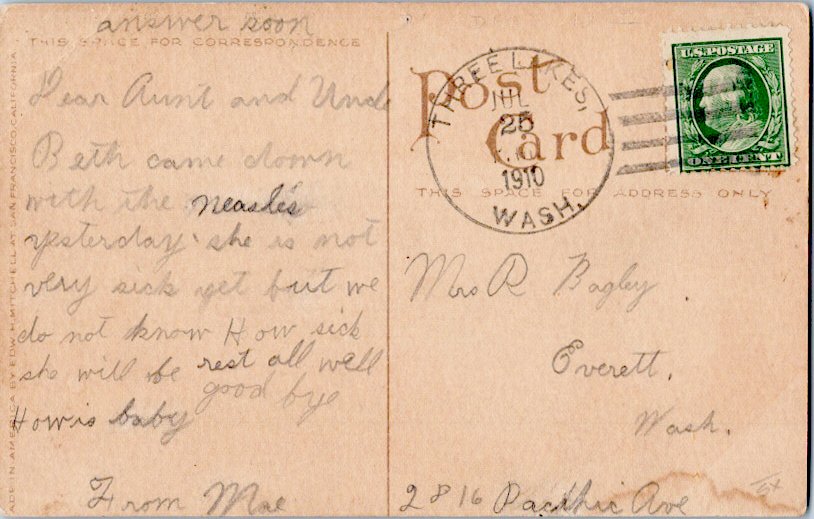 answer soon
THIS SPACE FOR CORRESPONDENCE
Dear Aunt and Uncle
Beth came down
with the measles
yesterday she is not
very sick yet but we
do not know How sick
she will be rest all well
good bye
How is baby
From Mae
MADE IN AMERICA BY EDW. H. MITCHELL AT SAN FRANCISCO, CALIFORNIA
Post
Card
THIS SPACE FOR ADDRESS ONLY
THREE LAKES,
JUL
25
1910
WASH.
U.S. POSTAGE
ONE CENT
Mrs R Bagley
Everett.
Wash.
2816 Pacific Ave